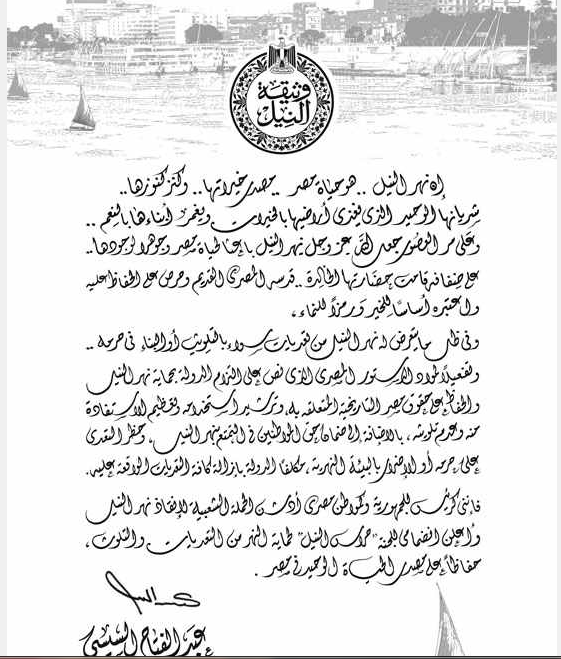 وثيقة
النيل
إن نهر النيل .. هو حياة مصر .. مصدر خيراتها .. وكنز كنوزها ..
شريانها الوحيد الذى يغذى أراضيها بالخيرات ويغمر أبناءها بالنعم ..
وعلى مر العصور جعل الله عز وجل نهر النيل باعثا لحياة مصر وجوهرا لوجودها ..
على ضفافه قامت حضارتها الخالدة .. قدسه المصرى القديم وحرص على الحفاظ عليه
واعتبره أساسًا للخير ورمزًا للنماء ،
وفى ظل ما يتعرض له نهر النيل من تعديات سواء بالتلويث أو البناء فى حرمه ..
وتفعيلًا لمواد الدستور المصرى الذى نص على التزام الدولة بحماية نهر النيل
والحفاظ على حقوق مصر التاريخية المتعلقه به ، وترشيد استخدامه وتعظيم الاستفادة
منه وعدم تلويثه ، بالاضافة إلى ضمان حق المواطنين فى التمتع بنهر النيل ، وحظر التعدى
على حرمه أو الإضرار بالبيئة النهرية ، مكلفًا الدولة بإزالة كافة التعديات الواقعة عليه .
فإننى كرئيس للجمهورية وكمواطن مصرى أدشن الحملة الشعبية لإنقاذ نهر النيل
وأعلن انضمامى للجنة "حراس النيل" لحماية النهر من التعديات والتلوث ،
حفاظًا على مصدر الحياة الوحيد فى مصر .
عبد الفتاح السيسى